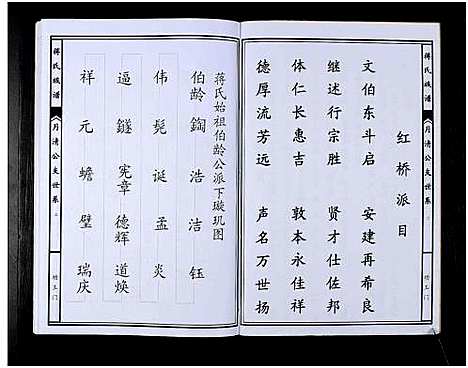 蒋氏族谱
月清公支世系
竹工门
红桥派目
文伯东斗启 安建再希良
继述行宗胜 贤才仕佐邦
体仁长惠吉 敦本永佳祥
德厚流芳远 声名万世扬
蒋氏始祖伯龄公派下璇玑图
伯龄 鍧 浩 洁 钰
伟 髡 诞 孟 炎
逼 鐩 宪章 德辉 道焕
祥 元 蟾 璧 瑞庆
蒋氏族谱
月清公支世系
竹工门